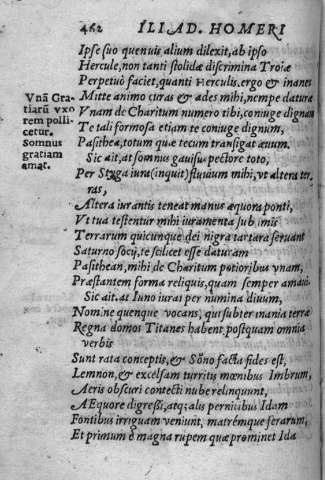 462 ILIAD. HOMERI
Ipse suo quenuis alium dilexit, ab ipso
Hercule, non tanti stolidæ discrimina Troiæ
Perpetuò faciet, quanti Herculis, ergo & inanes
Mitte animo curas & ades mihi, nempe datura
Vnam de Charitum numero tibi, coniuge dignam
Te tali formosa etiam te coniuge dignum,
Pasithea, totum quæ tecum transigat æuum.
Sic ait, at somnus gauisus pectore toto,
Per Styga iura (inquit) fluuium mihi, vt altera ter
ras,
Altera iurantis teneat manus æquora ponti,
Vt tua testentur mihi iuramenta sub imis
Terrarum quicunque dei nigra tartara seruant
Saturno socij, te scilicet esse daturam
Pasithean, mihi de Charitum potioribus vnam,
Præstantem forma reliquis, quam semper amaui.
Sic ait, at Iuno iurat per numina diuum,
Nomine quenque vocans, qui subter mania terræ
Regna domos Titanes habent postquam omnia
verbis
Sunt rata conceptis, & Sōno facta fides est,
Lemnon, & excelsam turritis mœnibus Imbrum,
Aeris obscuri contecti nube relinquunt,
AEquore digressi, atq; alis pernicibus Idam
Fontibus irriguam veniunt, matrémque ferarum,
Et primum è magna rupem quæ prominet Ida
Vnā Gra-
tiarū vxo
rem polli
cetur.
Somnus
gratiam
amat.